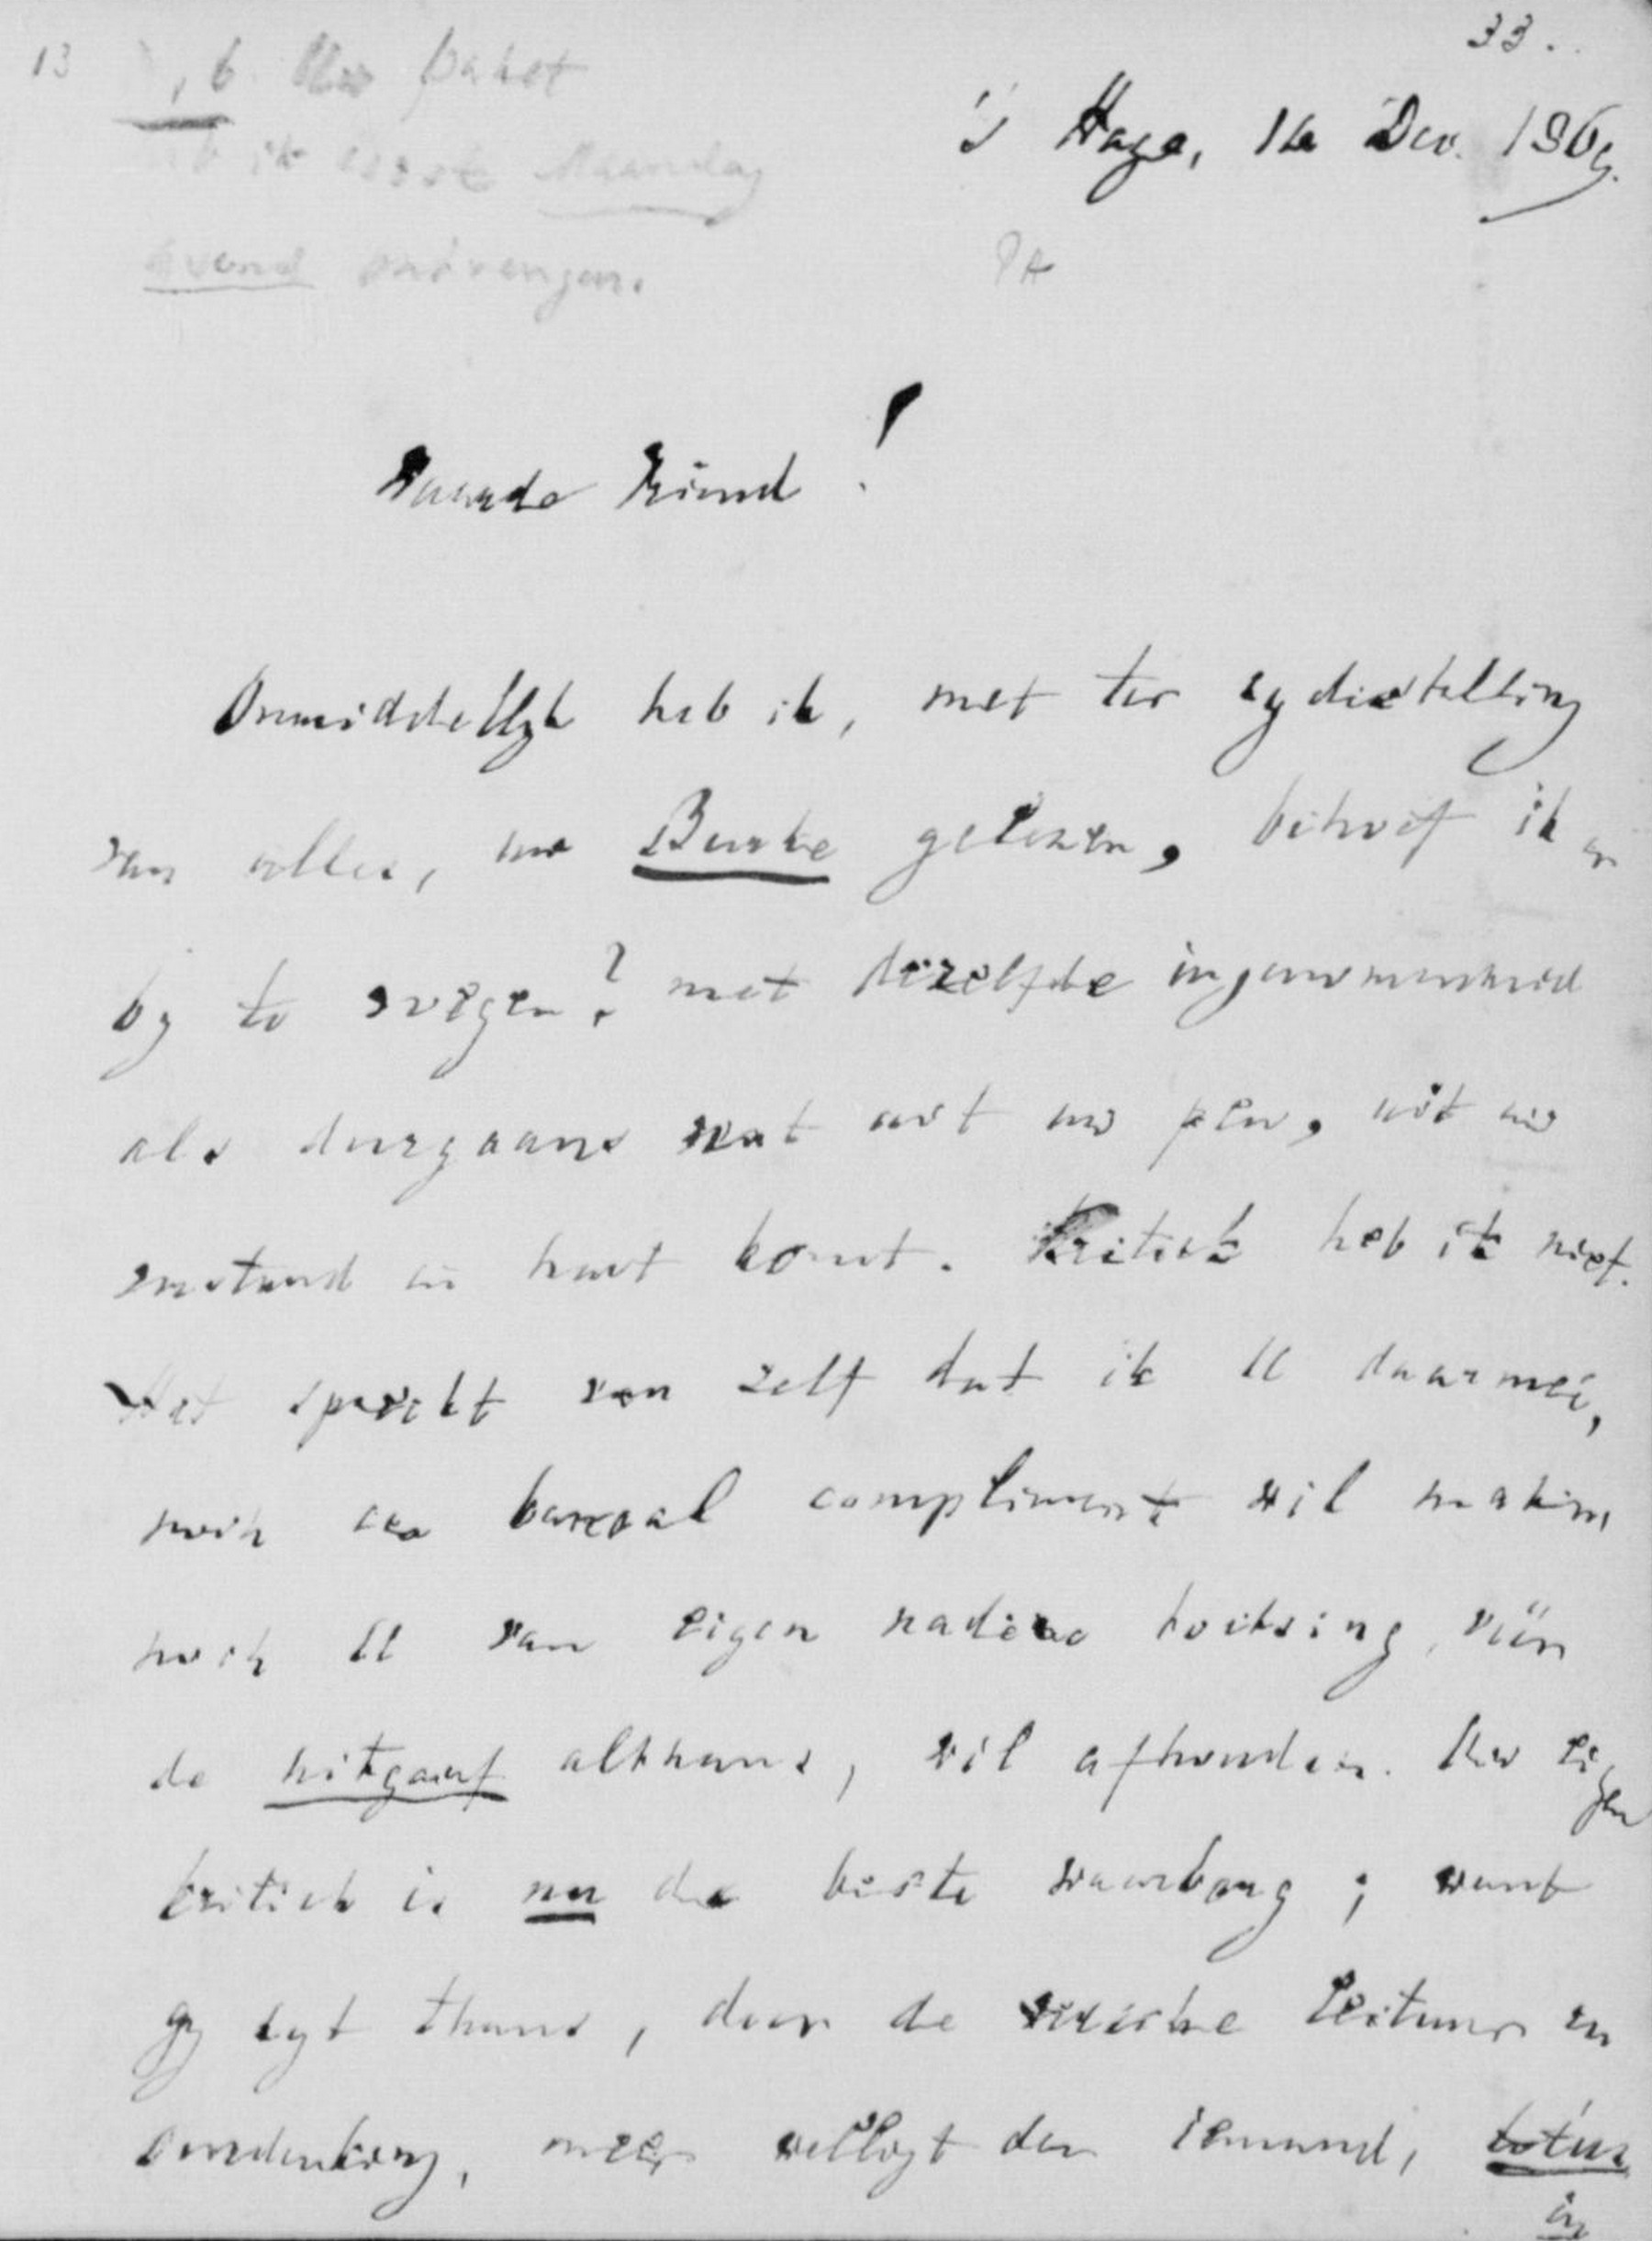 33.
13
Uw paket
ik eerst Maandag
avond ontvangen.
's Hage, 16 Dec. 1869.
PA
Waarde Vriend!
Onmiddellyk heb ik, met ter zydestelling
van alles, uw Burke gelezen, behoef ik er
by te voegen? met dezelfde ingenomenheid
als doorgaans wat uit uw pen, uit uw
verstand en hart komt. Kritiek heb ik niet.
Het spreekt van zelf dat ik U daarmeê,
noch een banaal compliment wil maken,
noch U van eigen nadere toetsing, vóór
de uitgaaf althans, wil afhouden. Uw eigen
kritiek is nu de beste waarborg; want
gy zyt thans, door de versche lectuur en
overdenking, meer welligt dan iemand, totus
in